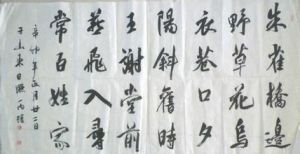 朱雀橋邊
野草花烏
衣巷口夕
陽斜舊時
王謝堂前
燕飛入尋
常百姓家
年月廿二日
于山東日照